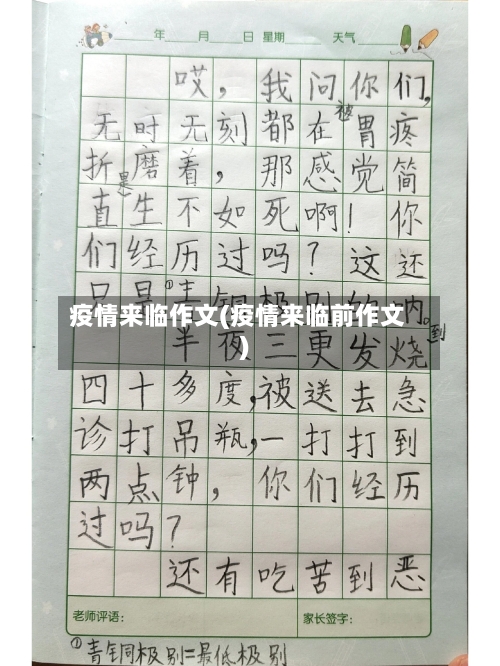 年 月 日 星期 天气
哎，我问你们，
无时无刻都在被胃疼
折磨着，那感觉简
直是生不如死啊！你
们经历过吗？这还
只是①青铜极别的呐。
疫情来临作文(疫情来临前作文
)
半夜三更发烧到
四十多度，被送去急
诊打吊瓶，一打打到
两点钟，你们经历
过吗？
还有吃苦到恶
老师评语： 家长签字：
①青铜极别=最低极别